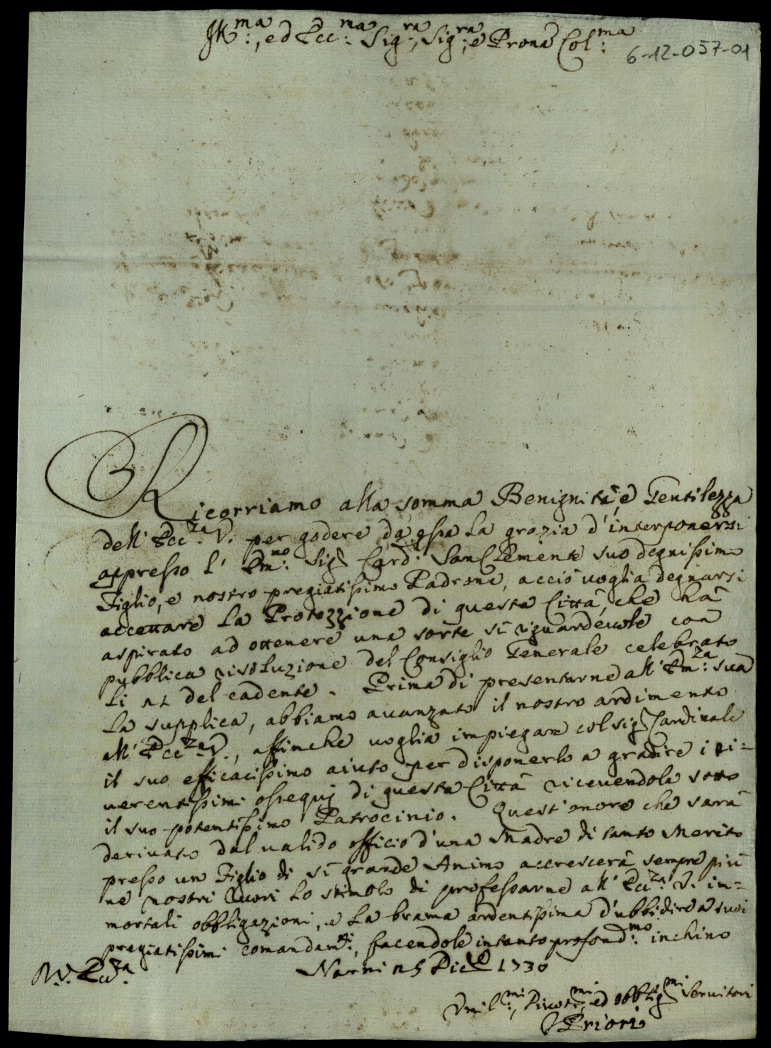 Ill.ma, ed Ecc.ma Sig.ra, Sig.ra, e Prona Col.ma
6-12-057-01
Ricorriamo alla somma Benignità, e Gentilezza
dell' Ecc.za V. per godere da essa la grazia d'interponersi
appresso l' Em.mo Sig.r Card. SanClemente suo degnissimo
Figlio, e nostro pregiatissimo Padrone, acciò voglia degnarsi
accettare la Protezzione di questa Città, che hà
aspirato ad ottenere una sorte sì riguardevole con
pubblica risoluzione del Consiglio Generale celebrato
li del cadente. Prima di presentarne all' Em.za sua
la supplica, abbiamo avanzato il nostro ardimento
all' Ecc.za V., affinche voglia impiegare col sig. Cardinale
il suo efficacissimo aiuto per disponerlo a gradire i ri=
uerentissimi ossequj di questa Città ricevendola sotto
il suo potentissimo Patrocinio. Quest'onore che sarà
derivato dal valido officio d'una Madre di tanto Merito
presso un Figlio di sì grande Animo accrescerà sempre più
ne nostri Cuori lo stimolo di professarne all' Ecc.za V. im=
mortali obbligazioni, e la brama ardentissima d'ubbidire a suoi
pregiatissimi comandam.ti, facendole intanto profond.mo inchino
Narni 5 Dic.e 1730
Vmil.mi, Divot.mi, ed obblig.mi Servitori
Priori